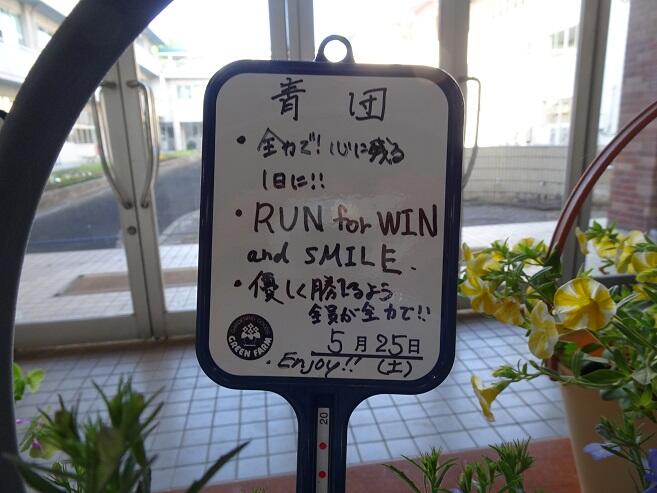 青団
・全力で!心に残る
1日に!!
・RUN for WIN
and SMILE.
・優しく勝てるよう
全員が全力で!!
5月25日
・Enjoy!! (土)
GREEN FARM
20